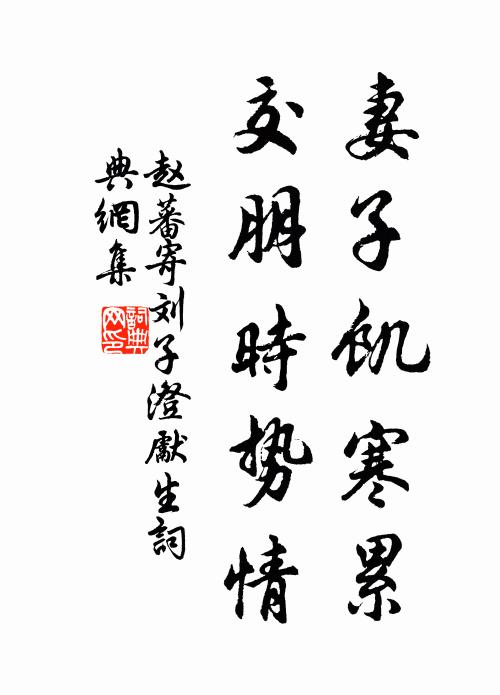 妻子飢寒累
交朋時势情
赵蕃寄刘子澄獻生詞
典網集
詞典网印